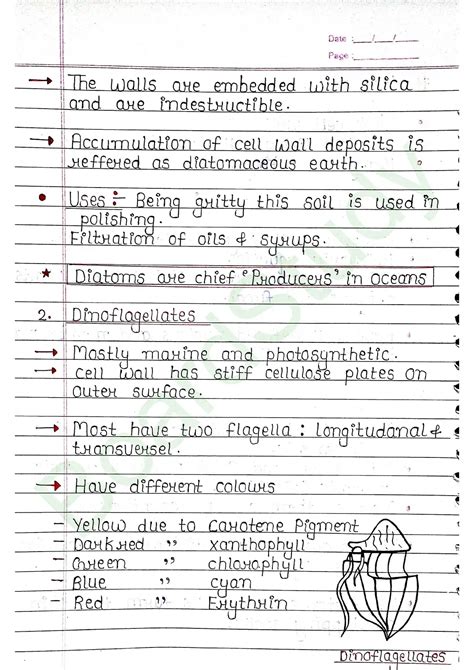 Date :__/__/__
Page :
→ The walls are embedded with silica
and are indestructible.
→ Accumulation of cell wall deposits is
reffered as diatomaceous earth.
• Uses :- Being gritty this soil is used in
polishing.
Filtration of oils & syrups.
★ Diatoms are chief "Producers" in oceans
2. Dinoflagellates
→ Mostly marine and photosynthetic.
→ cell wall has stiff cellulose plates on
outer surface.
→ Most have two flagella : longitudanal &
transversel.
→ Have different colours
- Yellow due to carotene Pigment
- Darkred " xanthophyll
- Green " chlorophyll
- Blue " cyan
- Red " Erythrin
Dinoflagellates
BoardStudy